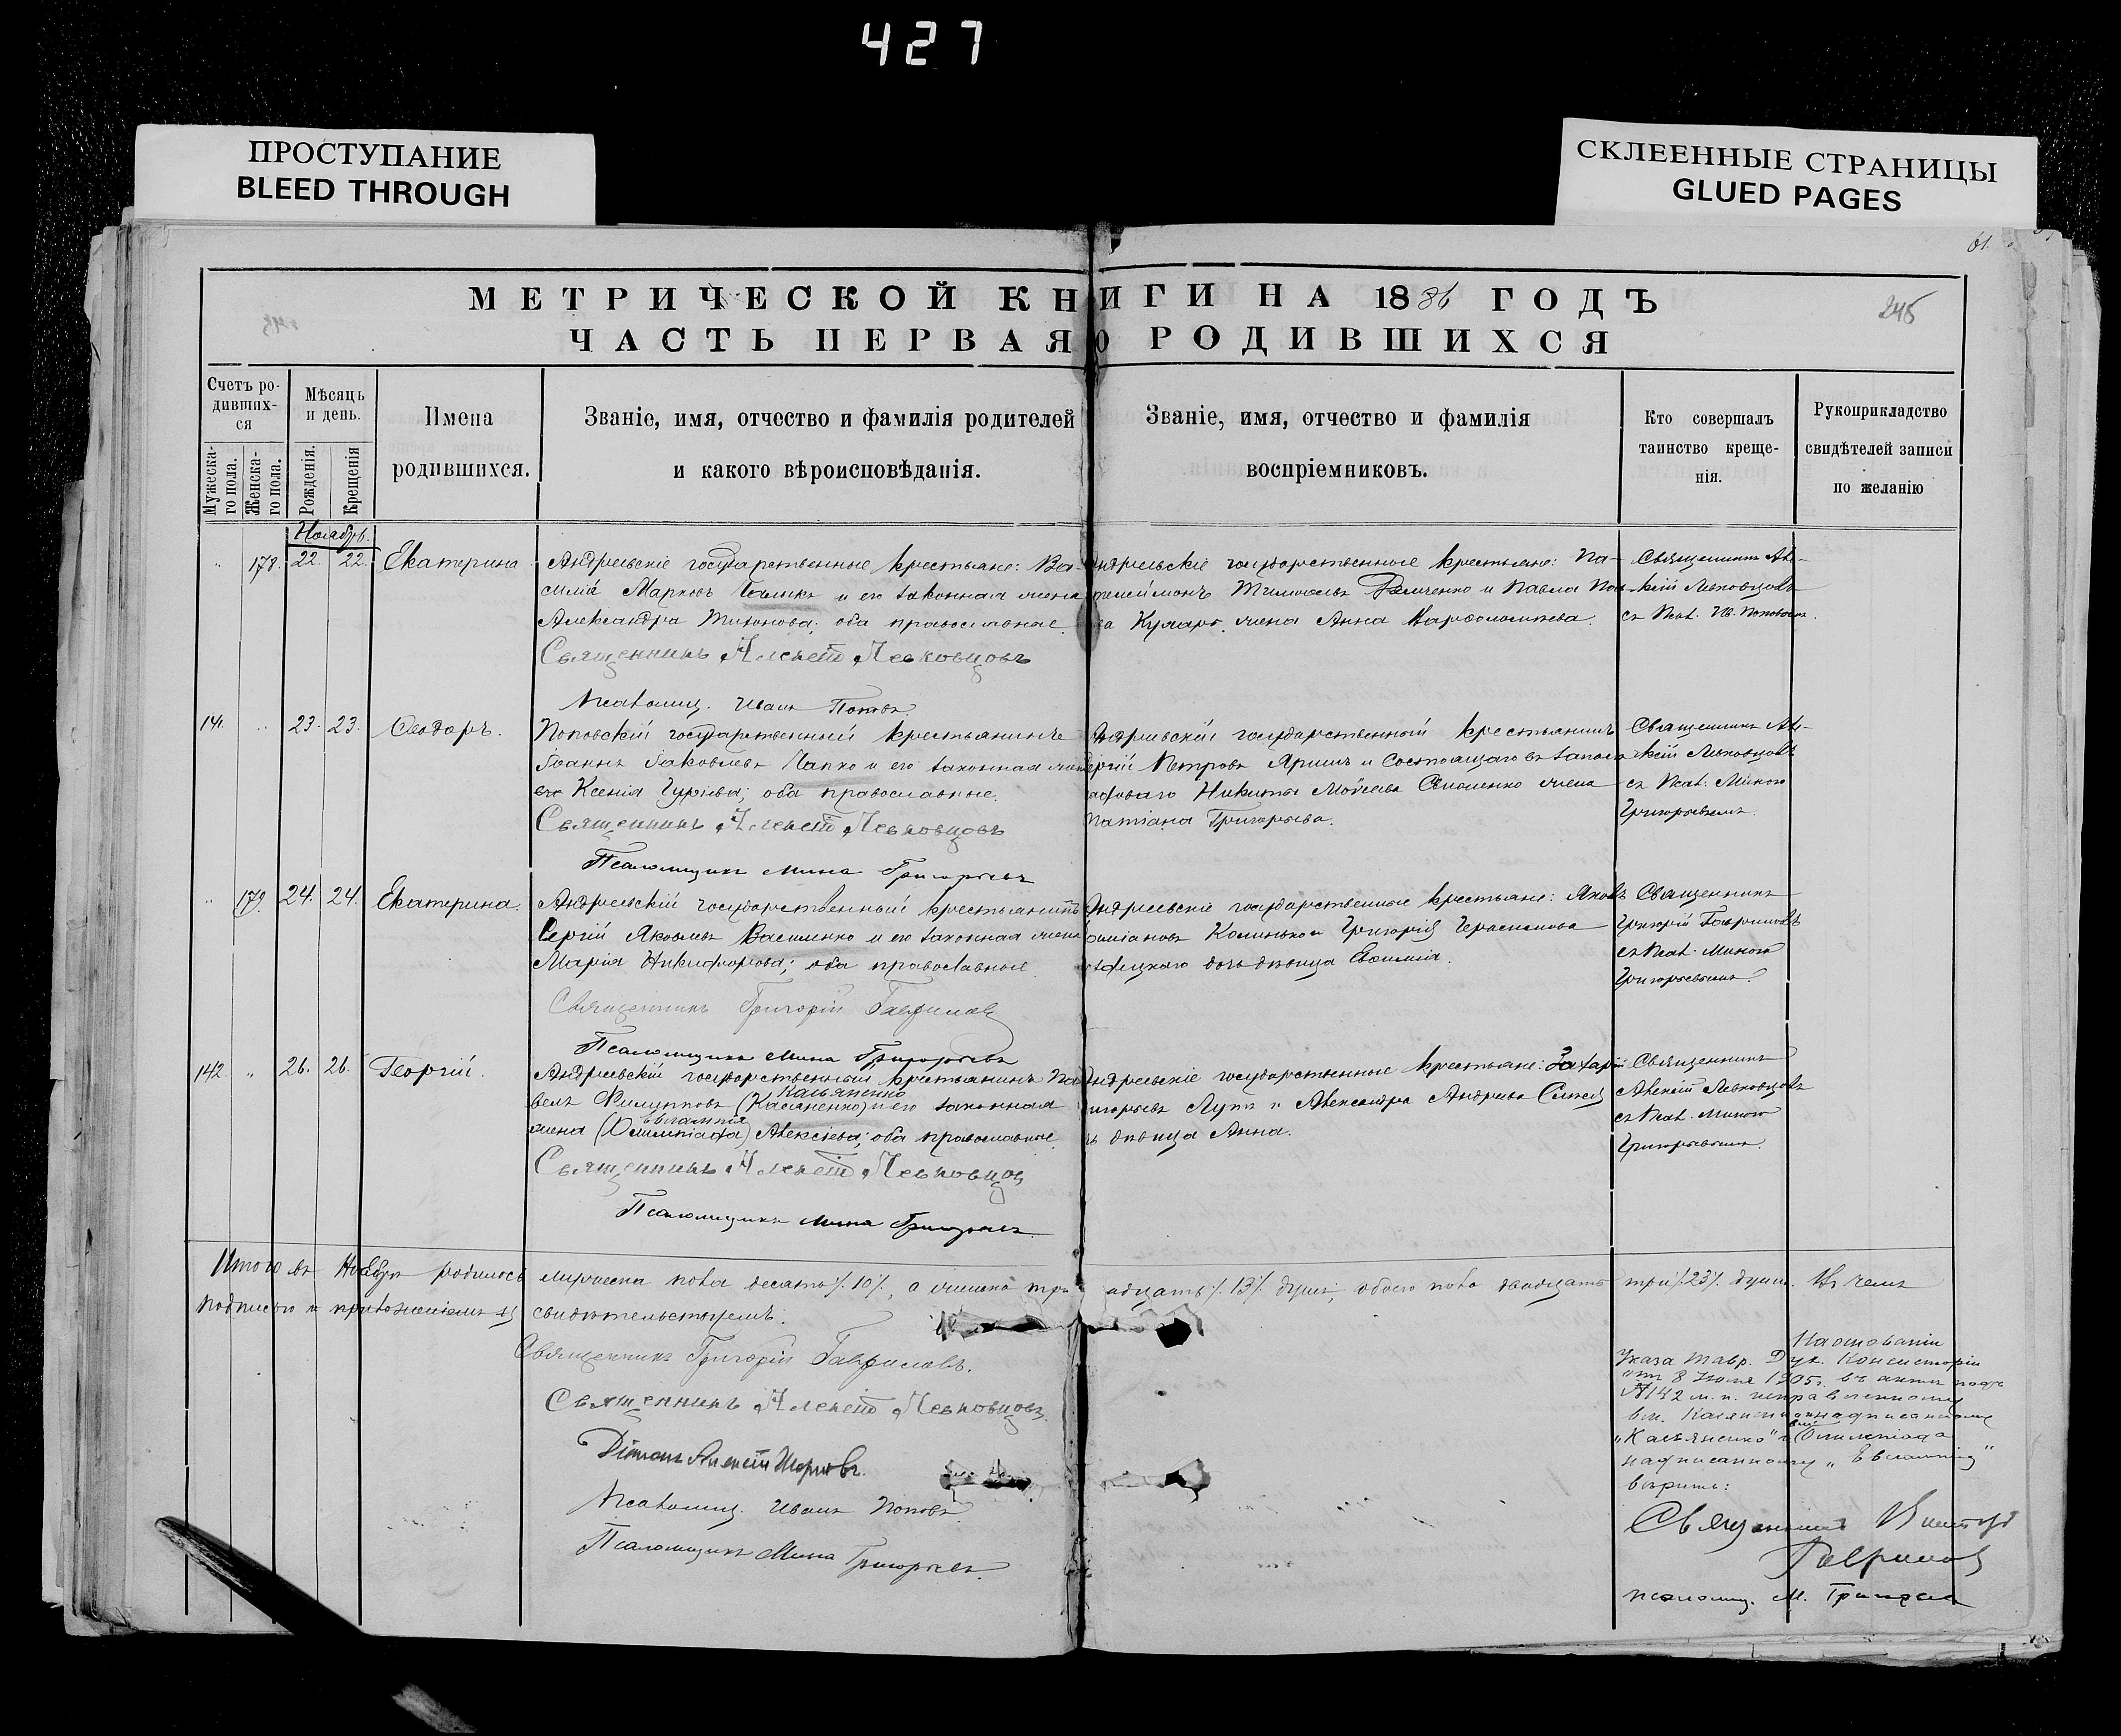 427
ПРОСТУПАНИЕ
BLEED THROUGH
СКЛЕЕННЫЕ СТРАНИЦЫ
GLUED PAGES
61.
МЕТРИЧЕСКОЙ КНИГИ НА 1886 ГОДЪ
245
ЧАСТЬ ПЕРВАЯ О РОДИВШИХСЯ
Счетъ ро-
дивших-
ся
Мужеска-
го пола.
Женска-
го пола.
Мѣсяцъ
и день.
Рожденія.
Крещенія
Имена
родившихся.
Званіе, имя, отчество и фамилія родителей
и какого вѣроисповѣданія.
Званіе, имя, отчество и фамилія
воспріемниковъ.
Кто совершалъ
таинство креще-
нія.
Рукоприкладство
свидѣтелей записи
по желанію
Ноябрь.
178. 22. 22. Екатерина
Андреевскіе государственные крестьяне: Ва-
силій Марковъ и его законная жена
Александра Тихонова; оба православные.
Священникъ Алексій Левковцовъ
Псаломщ. Иванъ Поповъ.
Андреевскіе государственные крестьяне: Па-
жена Анна Варфоломеева.
Священникъ Але-
ксій Левковцовъ
съ Псал. Ив. Поповымъ.
141. 23. 23. Ѳеодоръ.
Поповскій государственный крестьянинъ
Іоаннъ Яковлевъ Цапко и его законная жена
Ксенія Гуріева; оба православные.
Священникъ Алексій Левковцовъ
Псаломщикъ Мина Григорьевъ
Андреевскій государственный крестьянинъ
Петровъ и состоящаго въ запасѣ
Никиты Мойсеева жена
Татіана Григорьева.
Священникъ Але-
ксій Левковцовъ
съ Псал. Миною
Григорьевымъ.
179. 24. 24. Екатерина.
Андреевскій государственный крестьянинъ
Сергій Яковлевъ Василенко и его законная жена
Марія Никифорова; оба православные
Священникъ Григорій Гавриловъ
Псаломщикъ Мина Григорьевъ
Андреевскіе государственные крестьяне: Яковъ
Калинько и Григорія Герасимова
дочь дѣвица Евфимія.
Священникъ
Григорій Гавриловъ
съ Псал. Миною
Григорьевымъ.
142. 26. 26. Георгій.
Андреевскій государственный крестьянинъ Па-
Касьяненко
велъ Филипповъ (Касяненко) и его законная
Евлампія
жена (Олимпіада) Алексіева; оба православные.
Священникъ Алексій Левковцовъ
Псаломщикъ Мина Григорьевъ.
Андреевскіе государственные крестьяне: Захарій
Григорьевъ Лутъ и Александра Андреева
дѣвица Анна.
Священникъ
Алексій Левковцовъ
съ Псал. Миною
Григорьевымъ.
Итого въ Ноябрѣ родилось мужеска пола десять /10/, а женска тринадцать /13/ душъ, обоего пола двадцать три /23/ души. Въ чемъ
подписью и приложеніемъ свидѣтельствуемъ.
Священникъ Григорій Гавриловъ.
Священникъ Алексій Левковцовъ.
Діаконъ Алексій
Псаломщ. Иванъ Поповъ.
Псаломщикъ Мина Григорьевъ.
На основаніи
Указа Тавр. Дух. Консисторіи
отъ 8 Іюля 1905 г. въ актѣ подъ
№ 142 м. п. исправленному
вм. надписанному
„Касьяненко" и Олимпіада
надписанному „Евлампія"
вѣрить:
Священникъ
Гавриловъ
псаломщ. М. Григорьевъ